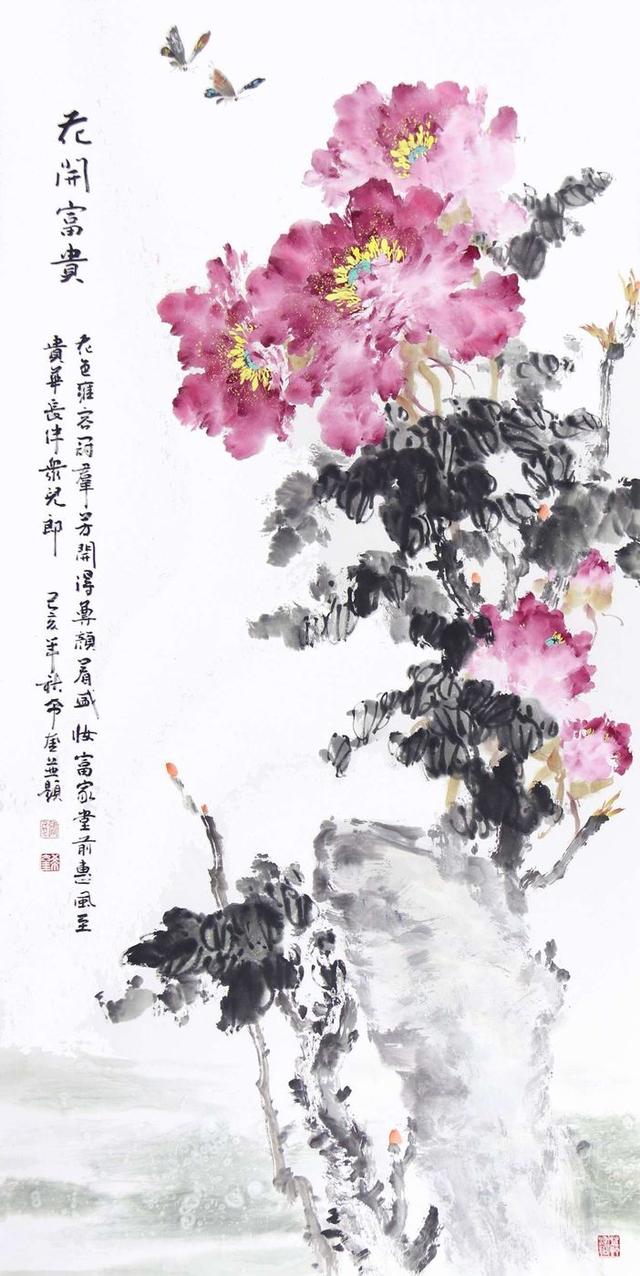 花開富貴
花色雍容冠羣芳開得尊顏着盛妝富家堂前惠風至
貴華長伴衆兒郎 己亥年秋希奎並題